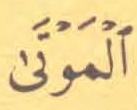 ٱلْمَوْتَىٰ